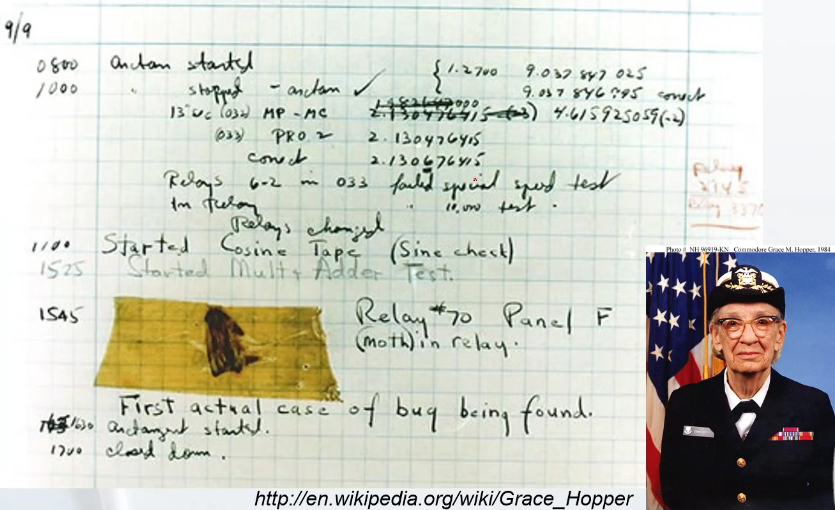 9/9
0800 Arctan started { 1.2700 9.037 847 025
1000 " stopped - arctan ✓ 9.037 846 795 correct
13"uc (032) MP - MC 2.130476415 (-3) 4.615925059(-2)
(033) PRO 2 2.130476415
correct 2.130676415
Relays 6-2 in 033 failed special speed test
In relay " 10,000 test .
Relays changed
1100 Started Cosine Tape (Sine check)
1525 Started Mult + Adder Test.
1545 Relay #70 Panel F
(moth) in relay.
First actual case of bug being found.
1630 arctangent started.
1700 closed down .
Relay
2145
Relay 3370
Photo # NH 96919-KN Commodore Grace M. Hopper, 1984
http://en.wikipedia.org/wiki/Grace_Hopper